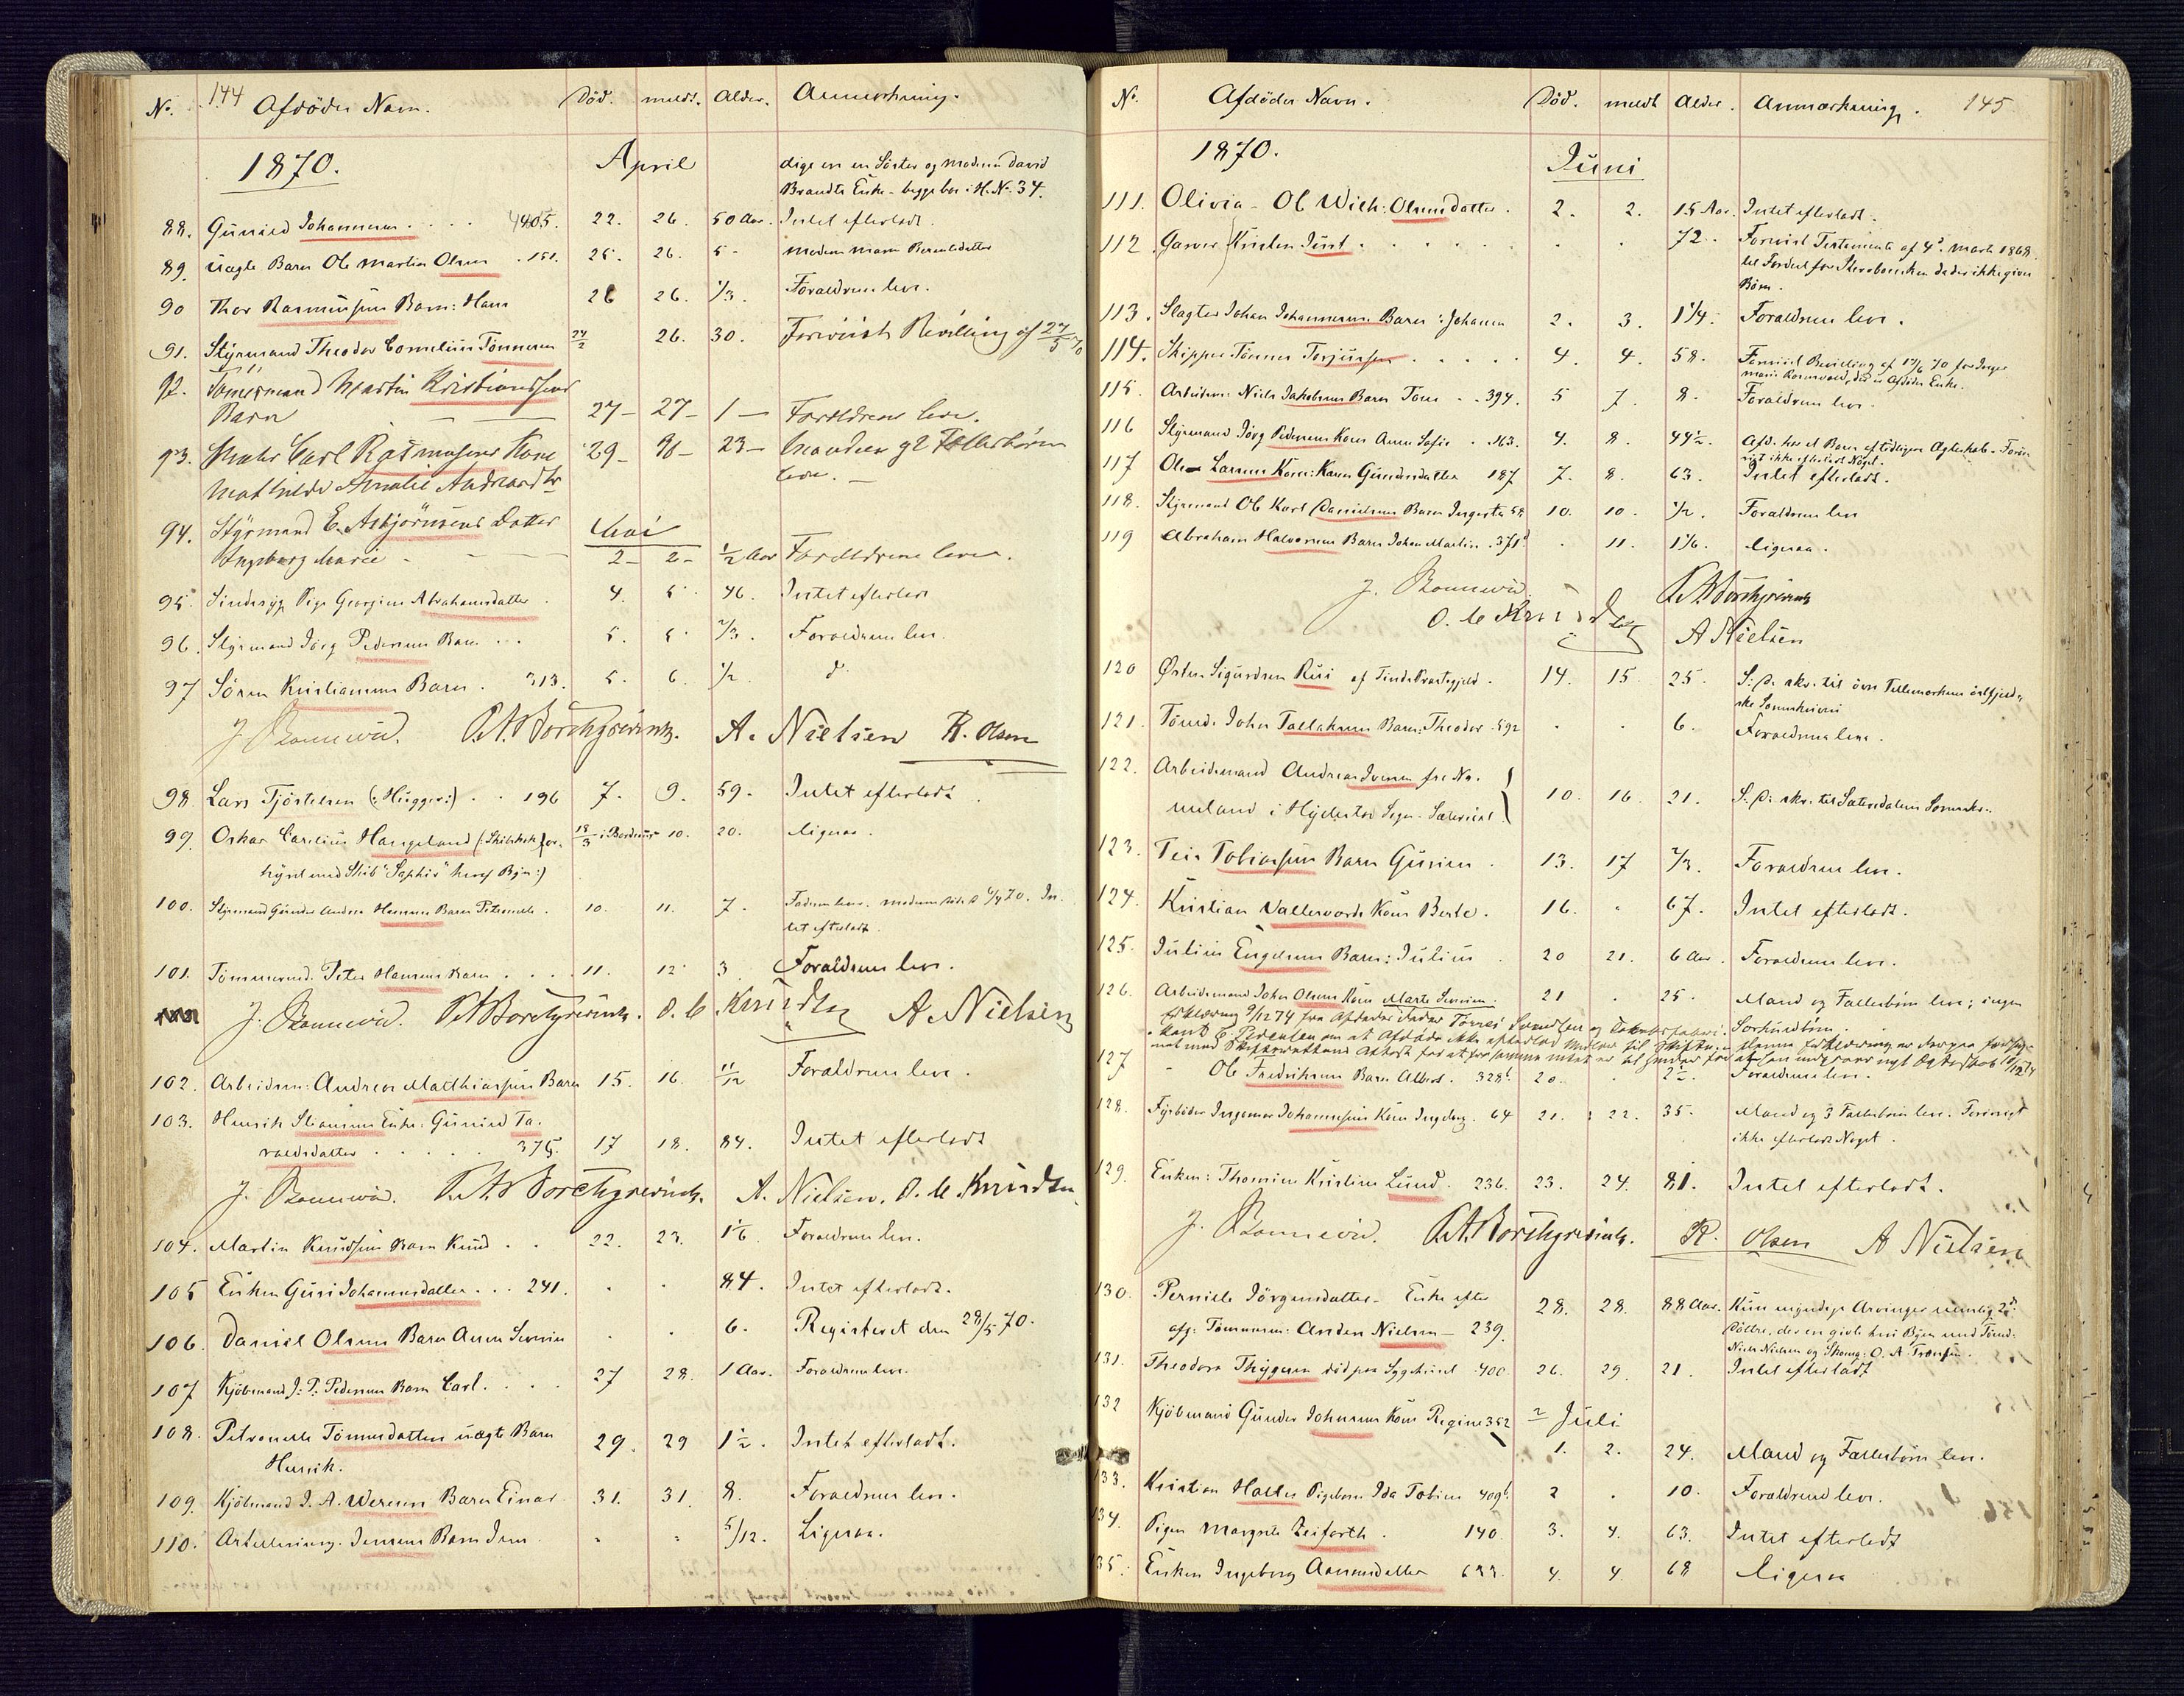 No. 144 Afdödes Navn. Död. meldt. Alder. Anmærkning.
1870. April dige en en Söster og moderen David
Brandts Enke - begge bor i H. No. 34.
88. Gunild Johannesen . . . . 4405. 22. 26. 50 Aar. Intet efterladt.
89. uægte Barn Ole Martin Olsen . 151. 25. 26. 5 - moderen Maren Berentsdatter
90 Thor Rasmussens Barn: Hans 26 26. 1/3. Forældrene lever.
91. Styrmand Theodor Cornelius Tönnesen 24/2 26. 30. Forevist Bevilling af 24/5 70
92. Tömermand Martin Kristiansens
Barn 27 - 27 - 1 - Forældrene lever.
93. Maler Carl Rasmusens Kone 29 - 30 - 23 - Manden og 2 Fællesbörn
Mathilde Amalie Andreasdtr lever. -
94. Styrmand E. Asbjörnsens Datter Mai
Ingeborg Marie - 2 - 2 - 1/2 Aar Forældrene lever.
95. Sindssyg Pige Georgine Abrahamsdatter . 4. 5. 46. Intet efterladt
96. Styrmand Jörg Pedersens Barn . . 5. 5. 2/3. Forældrene lev.
97 Sören Kristiansens Barn . 313. 5. 6. 1/2. do
J. Bonnevie. P.A. Borchgrevink. A. Nielsen R. Olsen
98. Lars Tjöstelsen (: Hugger :) . . 196 7. 9. 59. Intet efterladt
99. Oskar Carelius Haugeland (: Skibskok for- 18/3 i Bordeaux 10. 20. ligesaa.
hyret med Skib "Saphir" heraf Byen :)
100. Styrmand Gunder Andreas Hansens Barn Petronelle . 10. 11. 7. Faderen lever. moderen död 4/4 70. In-
tet efterladt.
101. Tömmermd. Peter Hansens Barn . . . . 11. 12. 3 Forældrene lev.
J. Bonnevie. P.A. Borchgrevink. O. C. Knudsen A. Nielsen
102. Arbeidsm: Andreas Matthiassens Barn 15. 16. 11/12 Forældrene lever.
103. Henrik Stiansens Enke: Gunild Ta-
raldsdatter . . . . . 375. 17 18. 84. Intet efterladt
J. Bonnevie. P.A. Borchgrevink. A. Nielsen. O. C. Knudsen
104. Martin Knudsens Barn Knud . . 22. 23. 1 1/6. Forældrene lev.
105 Enken Guri Johannesdatter . . . 241. . . 84. Intet efterladt.
106. Daniel Olsens Barn Anne Severine . . 6. Registeret den 28/5 70.
107 Kjöbmand J: P. Pedersens Barn Carl. . . . 27 28. 1 Aar. Forældrene lev.
108. Petronelle Tönnesdatters uægte Barn 29. 29 1 1/2. Intet efterladt.
Henrik.
109. Kjöbmand J. A. Weresen Barn Einar 31. 31. 8. Forældrene lev.
110. Artilleriserg. Jensens Barn Jens . " " 5/12. Ligesaa.
No. Afdödes Navn. Död. meldt Alder. Anmærkning. 145
1870. Juni
111. Olivia - Ol Wilh: Olsens Datter . 2. 2. 15 Aar. Intet efterladt.
112. Garver Kristen Juul . . . . . . . . 72. Forevist Testamente af 4de Marts 1868
til Fordel for Stervboenken da der ikke gives
Börn.
113. Slagter Johan Johannesens Barn: Johanna 2. 3. 1 1/4. Forældrene lev.
114. Skipper Tönnes Terjussen . . . . . 4. 4. 58. Forevist Bevilling af 17/6 70 for Inger
Marie Rosenvold, der er Afdödes Enke.
115. Arbeidsm: Niels Jakobsens Barn Tone . . 394. 5 7. 8. Forældrene lev.
116 Styrmand Jörg Pedersens Kone Anne Sofie . 163. 4. 8. 44 1/2. Afd. har et Barn af tidligere Ægteskab - Foröv-
rigt ikke efterladt Noget.
117 Ole Larsens Kone: Karen Gundersdatter 187 7. 8. 63. Intet efterladt.
118. Styrmand Ole Karl Danielsens Barn Ingertha 58 10. 10. 1/2. Forældrene lev
119 Abraham Halvorsens Barn Johan Martin . 371 . 11. 1 1/6. ligesaa.
J. Bonnevie. P.A. Borchgrevink
O. C. Knudsen A Nielsen
120 Østen Sigurdsen Rui af Tinds Præstegjeld . 14. 15. 25. S: P: skr. til övre Tellemarkens östfjeld-
ske Sorenskriveri
121. Tömd. John Tallaksens Barn: Theodor . 592 . . 6. Forældrene lever.
122. Arbeidsmand Andreas Iversen fra No-
meland i Hyllestad Sogn - Sætersdal. 10. 16. 21. S: P: skr. til Sætersdalens Sorenskr.
123. Teis Tobiassens Barn Gurine . 13. 17 2/3. Forældrene lev.
124. Kristian Vallevords Kone Berte. 16. " 67. Intet efterladt.
125. Julius Engelsens Barn: Julius . 20 21. 6 Aar. Forældrene lev.
126. Arbeidsmand John Olsens Kone Marte Severine . 21 . 25. Mand og Fællesbörn lev; ingen
Særkuldbörn.
127 " Ole Fredriksens Barn Albert . 328. 20. . 2 1/2. Forældrene lev.
128. Fyrböder Ingemar Johannessens Kone Ingeborg . 64 21. 22. 35. Mand og 3 Fællesbörn lev. Forövrigt
ikke efterladt Noget.
129. Enken: Thomine Kristine Lund . 236. 23. 24. 81. Intet efterladt.
J. Bonnevie. P.A. Borchgrevink. R. Olsen A Nielsen
130. Pernille Jörgensdatter - Enke efter 28. 28. 88 Aar. Kun myndige Arvinger nemlig 2de
afg: Tömmerm: Anders Nielsen - 239. Döttre, der er givte her i Byen med Tömd:
Niels Nielsen og Skomg: O. A. Fransen.
131. Theodora Thygesen död paa Sygehuset . 400 26. 29. 21. Intet efterladt
132 Kjöbmand Gunder Johnsens Kone Regine 352 Juli
1. 2. 24. Mand og Fællesbörn lev.
133. Kristian Holtes Pigebarn Ida Tobine 409. 2 . 10. Forældrene lev.
134. Pigen Margrete Zeiforth . 140. 3. 4. 63. Intet efterladt
135. Enken Ingeborg Aanensdatter 633. 4. 4. 68 Ligesaa